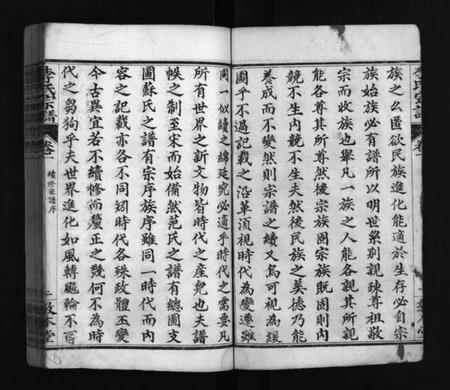 族之么匿欲民族進化能適於生存必自宗
族始族必有譜所以明世系別親疎尊祖敬
宗而收族也舉凡一族之人能各親其所親
能各尊其所尊然後宗族固宗族既固則內
競不生內競不生夫然後民族之美德乃能
養成而不變然則宗譜之續又烏可視為緩
圖乎不過記載之沿革須視時代為變遷雖
同一似續之綿延究必適乎時代之需要凡
所有世界之新文物皆時代之產兒也夫譜
牒之制至宋而始備然范氏之譜有總圖支
圖蘇氏之譜有宗序族序雖同一時代而內
容之記載亦各不同矧時代各殊政體丕變
今古異宜若不續修而釐正之幾何不為時
代之芻狗乎夫世界進化如風轉飈輪不官
李氏宗譜
卷一
續修宗譜序
二
敦本堂